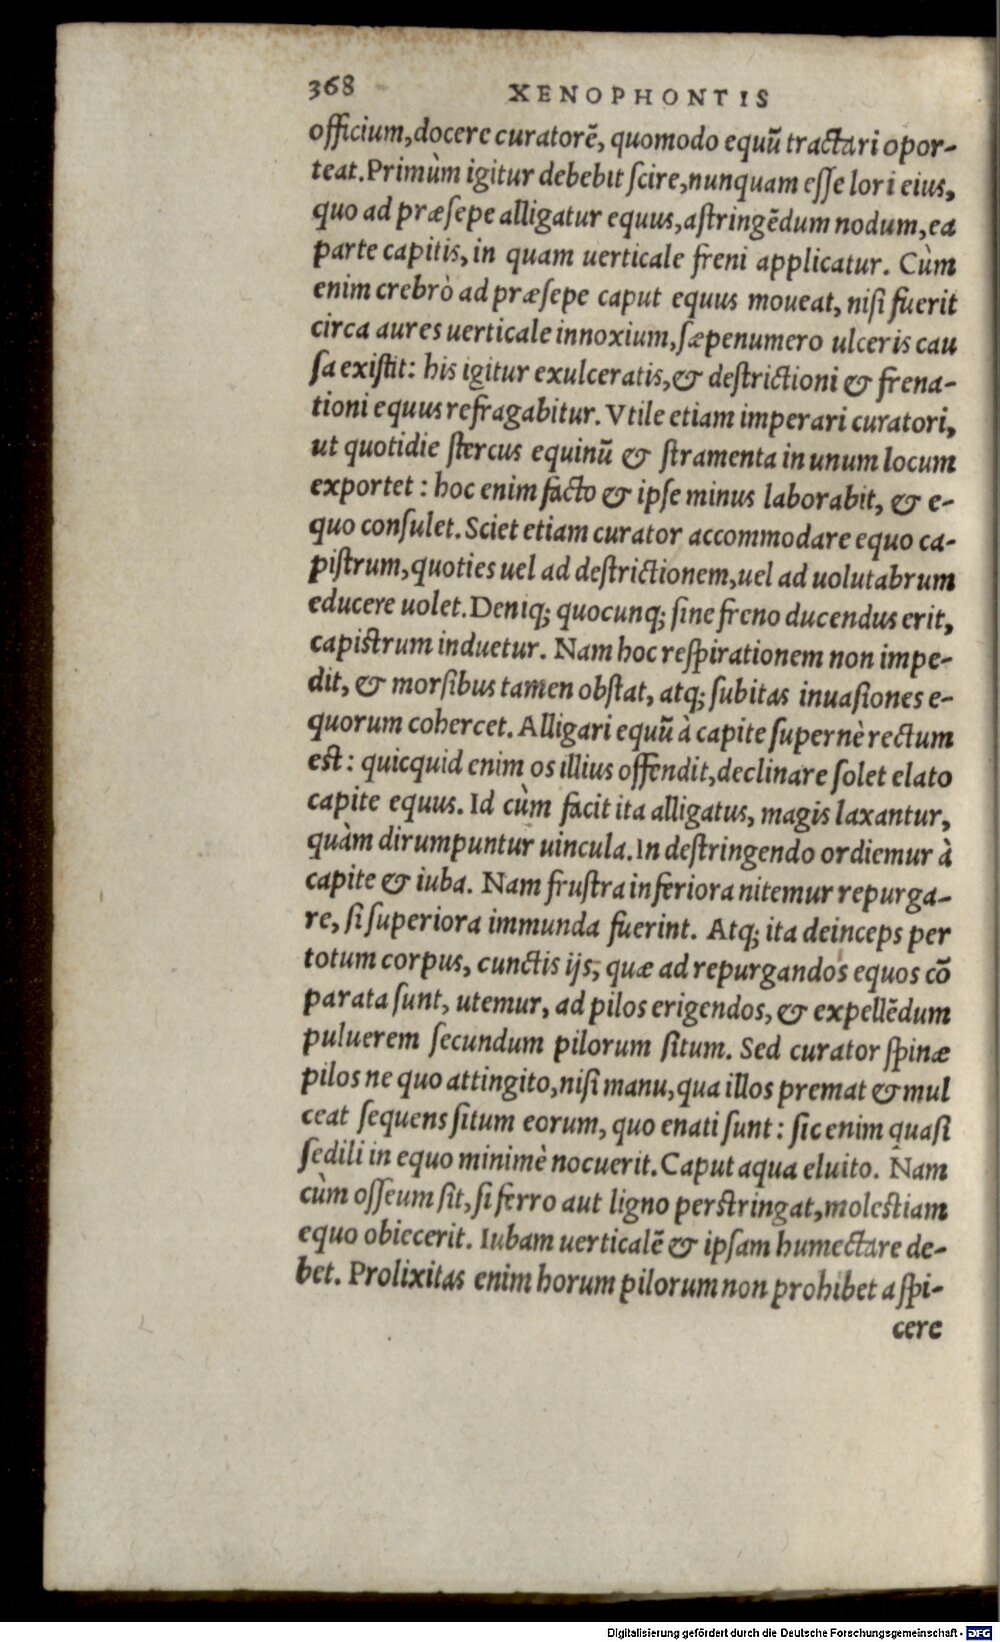 368 XENOPHONTIS
officium, docere curatorē, quomodo equū tractari opor-
teat. Primùm igitur debebit ſcire, nunquam eſſe lori eius,
quo ad præſepe alligatur equus, aſtringēdum nodum, ea
parte capitis, in quam uerticale freni applicatur. Cùm
enim crebrò ad præſepe caput equus moueat, niſi fuerit
circa aures uerticale innoxium, ſæpenumero ulceris cau
ſa exiſtit: his igitur exulceratis, & deſtrictioni & frena-
tioni equus refragabitur. Vtile etiam imperari curatori,
ut quotidie ſtercus equinū & ſtramenta in unum locum
exportet: hoc enim facto & ipſe minus laborabit, & e-
quo conſulet. Sciet etiam curator accommodare equo ca-
piſtrum, quoties uel ad deſtrictionem, uel ad uolutabrum
educere uolet. Deniq; quocunq; ſine freno ducendus erit,
capiſtrum induetur. Nam hoc reſpirationem non impe-
dit, & morſibus tamen obſtat, atq; ſubitas inuaſiones e-
quorum cohercet. Alligari equū à capite ſupernè rectum
eſt: quicquid enim os illius offendit, declinare ſolet elato
capite equus. Id cùm facit ita alligatus, magis laxantur,
quàm dirumpuntur uincula. In deſtringendo ordiemur à
capite & iuba. Nam fruſtra inferiora nitemur repurga-
re, ſi ſuperiora immunda fuerint. Atq; ita deinceps per
totum corpus, cunctis ijs, quæ ad repurgandos equos cō
parata ſunt, utemur, ad pilos erigendos, & expellēdum
puluerem ſecundum pilorum ſitum. Sed curator ſpinæ
pilos ne quo attingito, niſi manu, qua illos premat & mul
ceat ſequens ſitum eorum, quo enati ſunt: ſic enim quaſi
ſedili in equo minimè nocuerit. Caput aqua eluito. Nam
cùm oſſeum ſit, ſi ferro aut ligno perſtringat, moleſtiam
equo obiecerit. Iubam uerticalē & ipſam humectare de-
bet. Prolixitas enim horum pilorum non prohibet aſpi-
cere
Digitalisierung gefördert durch die Deutsche Forschungsgemeinschaft - DFG